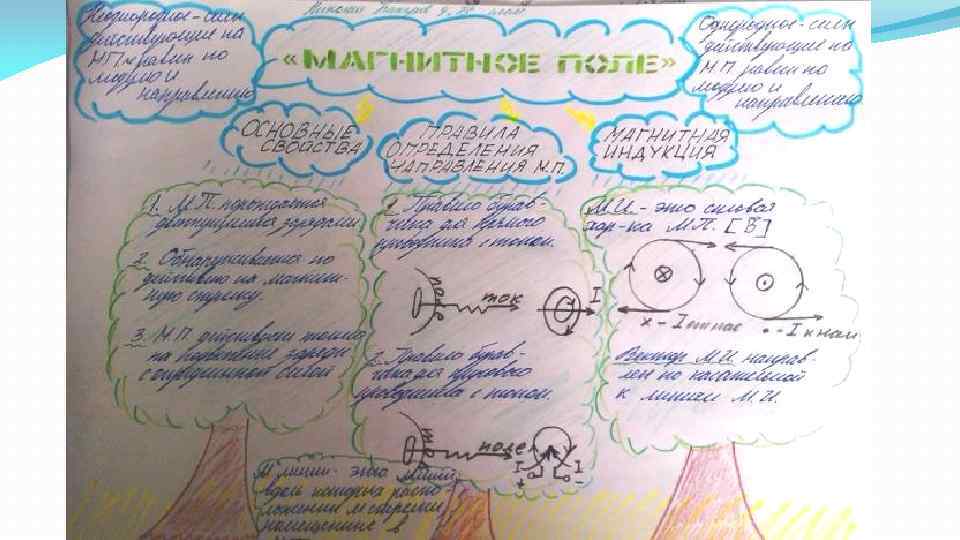 Неоднородное - силы
действующие на
М.П. равны по
модулю и
направлению
Однородное - силы
действующие на
М.П. равны по
модулю и
направлению
«МАГНИТНОЕ ПОЛЕ»
ОСНОВНЫЕ
СВОЙСТВА
ПРАВИЛА
ОПРЕДЕЛЕНИЯ
НАПРАВЛЕНИЯ М.П.
МАГНИТНАЯ
ИНДУКЦИЯ
1. М.П. порождается
движущимися зарядами
2. Обнаруживается по
действию на магнит-
ную стрелку.
3. М.П. действует только
на движущиеся заряды
с определенной силой
1. Правило бурав-
чика для прямого
проводника с током.
поле
ток
I
2. Правило бурав-
чика для кругового
проводника с током.
поле
I I
+ -
М.И. - это силовая
хар-ка М.П. [B]
x - I от нас
• - I к нам
Вектор М.И. направ-
лен по касательной
к линиям М.И.
М линии - это линии
вдоль которых распо-
ложении М стрелки
помещенные в